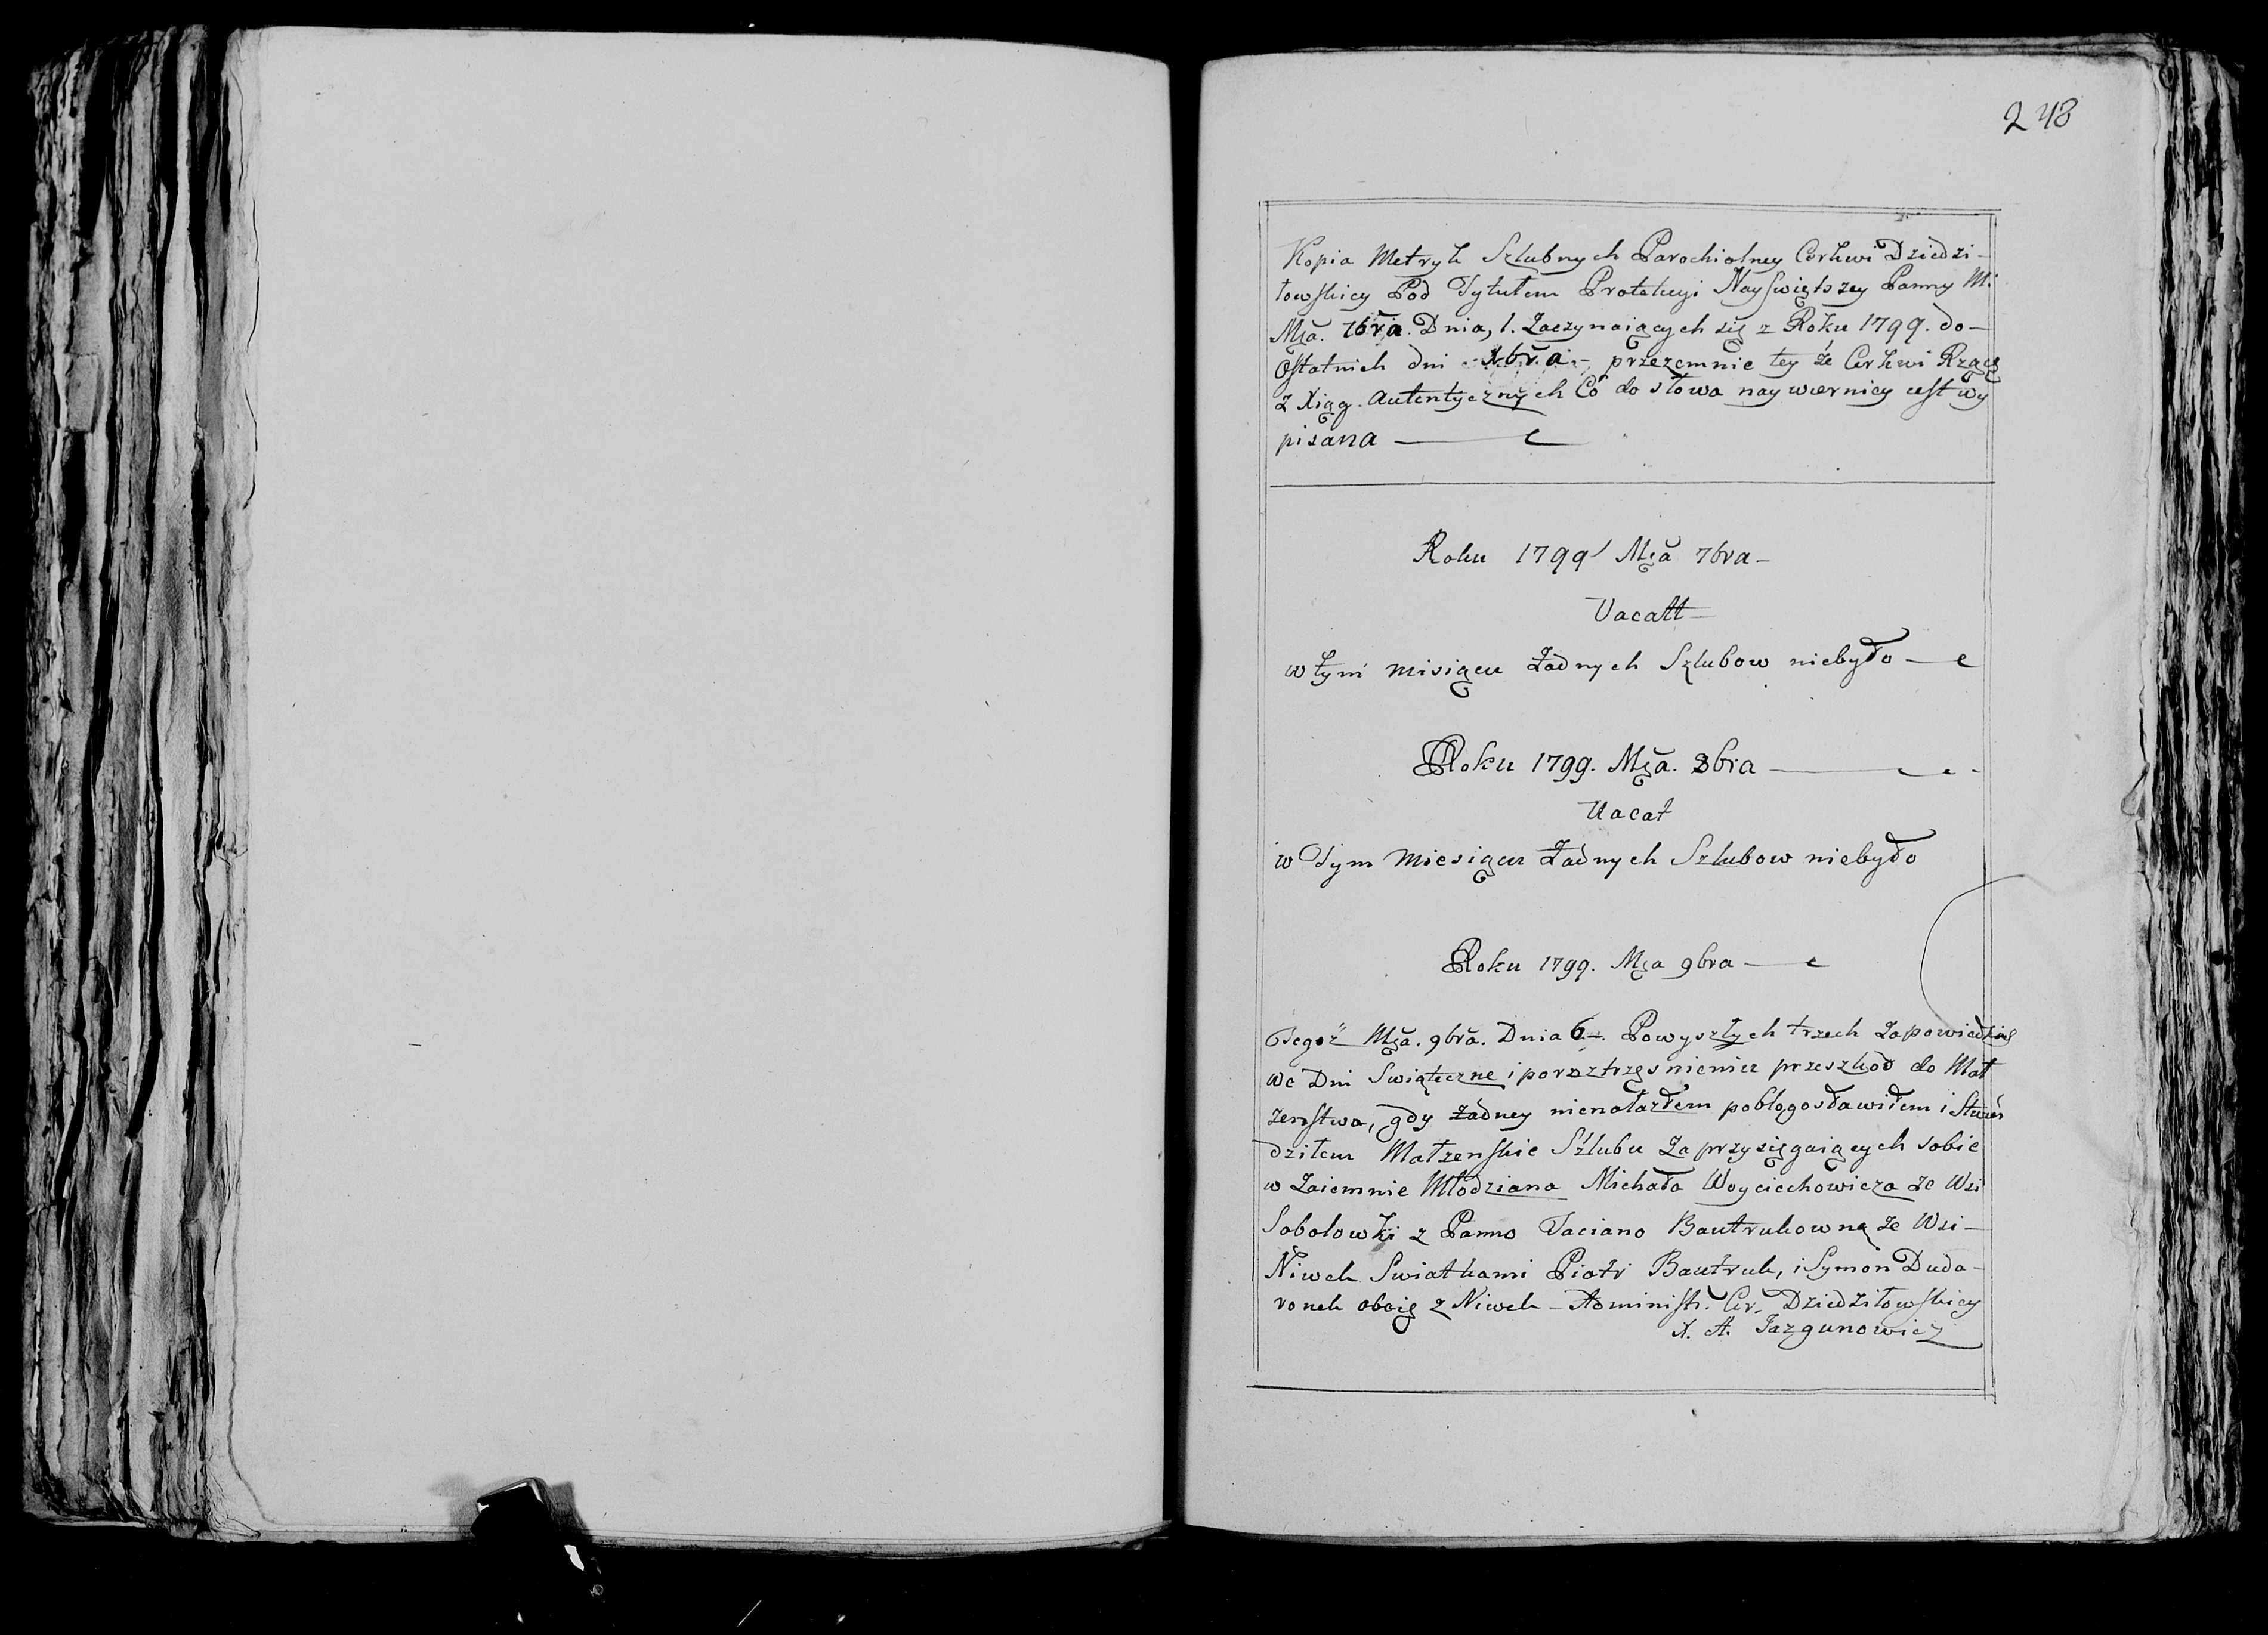 248
Kopia Metryk Szlubnych Parochialney Cerkwi Dziedzi-
łowskiey Pod Tytułem Protekcyi Nayświętszey Panny M:
Mca. 7bra. Dnia, 1. Zaczynaiących się z Roku 1799. do-
Ostatnich dni Xbra - przezemnie tey że Cerkwi Rządcę
z Xiąg. Autentycznych Co do słowa naywierniey iest wy
pisana
Roku 1799 Mca 7bra-
Vacatt
w tym misiącu Żadnych Szlubow niebyło
Roku 1799. Mca. 8bra
Uacat
w Tym Miesiącu Żadnych Szlubow niebyło
Roku 1799. Mca 9bra
Tegoż Mca. 9bra. Dnia 6. Powyszłych trzech Zapowiedziach
we Dni Swiąteczne i poroztrząsnieniu przeszkod do Mał
zenstwa, gdy żadney nienalazłem pobłogosławiłem i Stwier
dziłem Małzenskie Szlubu Zaprzysięgaiących sobie
w Zaiemnie Młodziana Michała Woyciechowicza ze Wsi
Sobolowki z Panno Taciano Bautrukowną ze Wsi-
Niwek Swiatkami Piotr Bautruk, i Symon Duda-
ronek oboie z Niwek - Administr. Cer. Dziedziłowskiey
X. A. Jazgunowicz